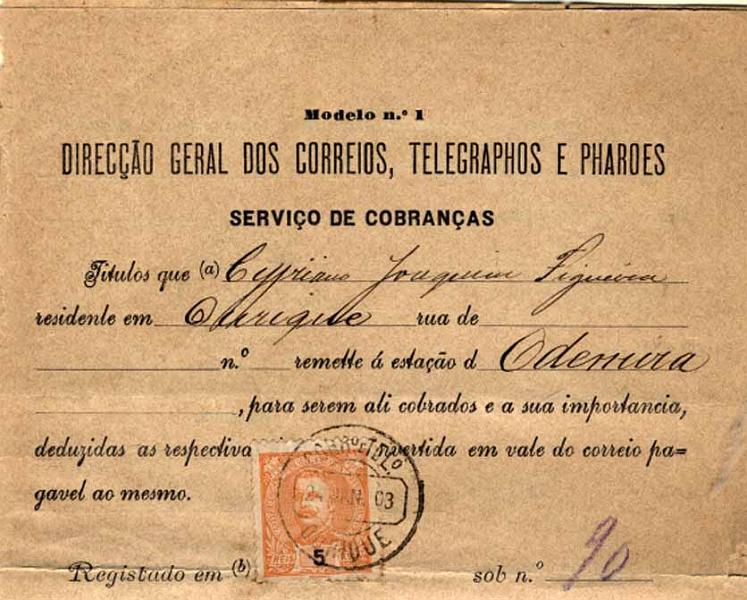 Modelo n.º 1
DIRECÇÃO GERAL DOS CORREIOS, TELEGRAPHOS E PHAROES
SERVIÇO DE COBRANÇAS
Titulos que (a) Cypriano Joaquim Figueira
residente em Ourique rua de
n.º remette á estação d Odemira
, para serem ali cobrados e a sua importancia,
deduzidas as respectiva vertida em vale do correio pa=
gavel ao mesmo.
CORRº E TELº
24 JAN. 03
OURIQUE
5
REIS
Registado em (b) sob n.º 90